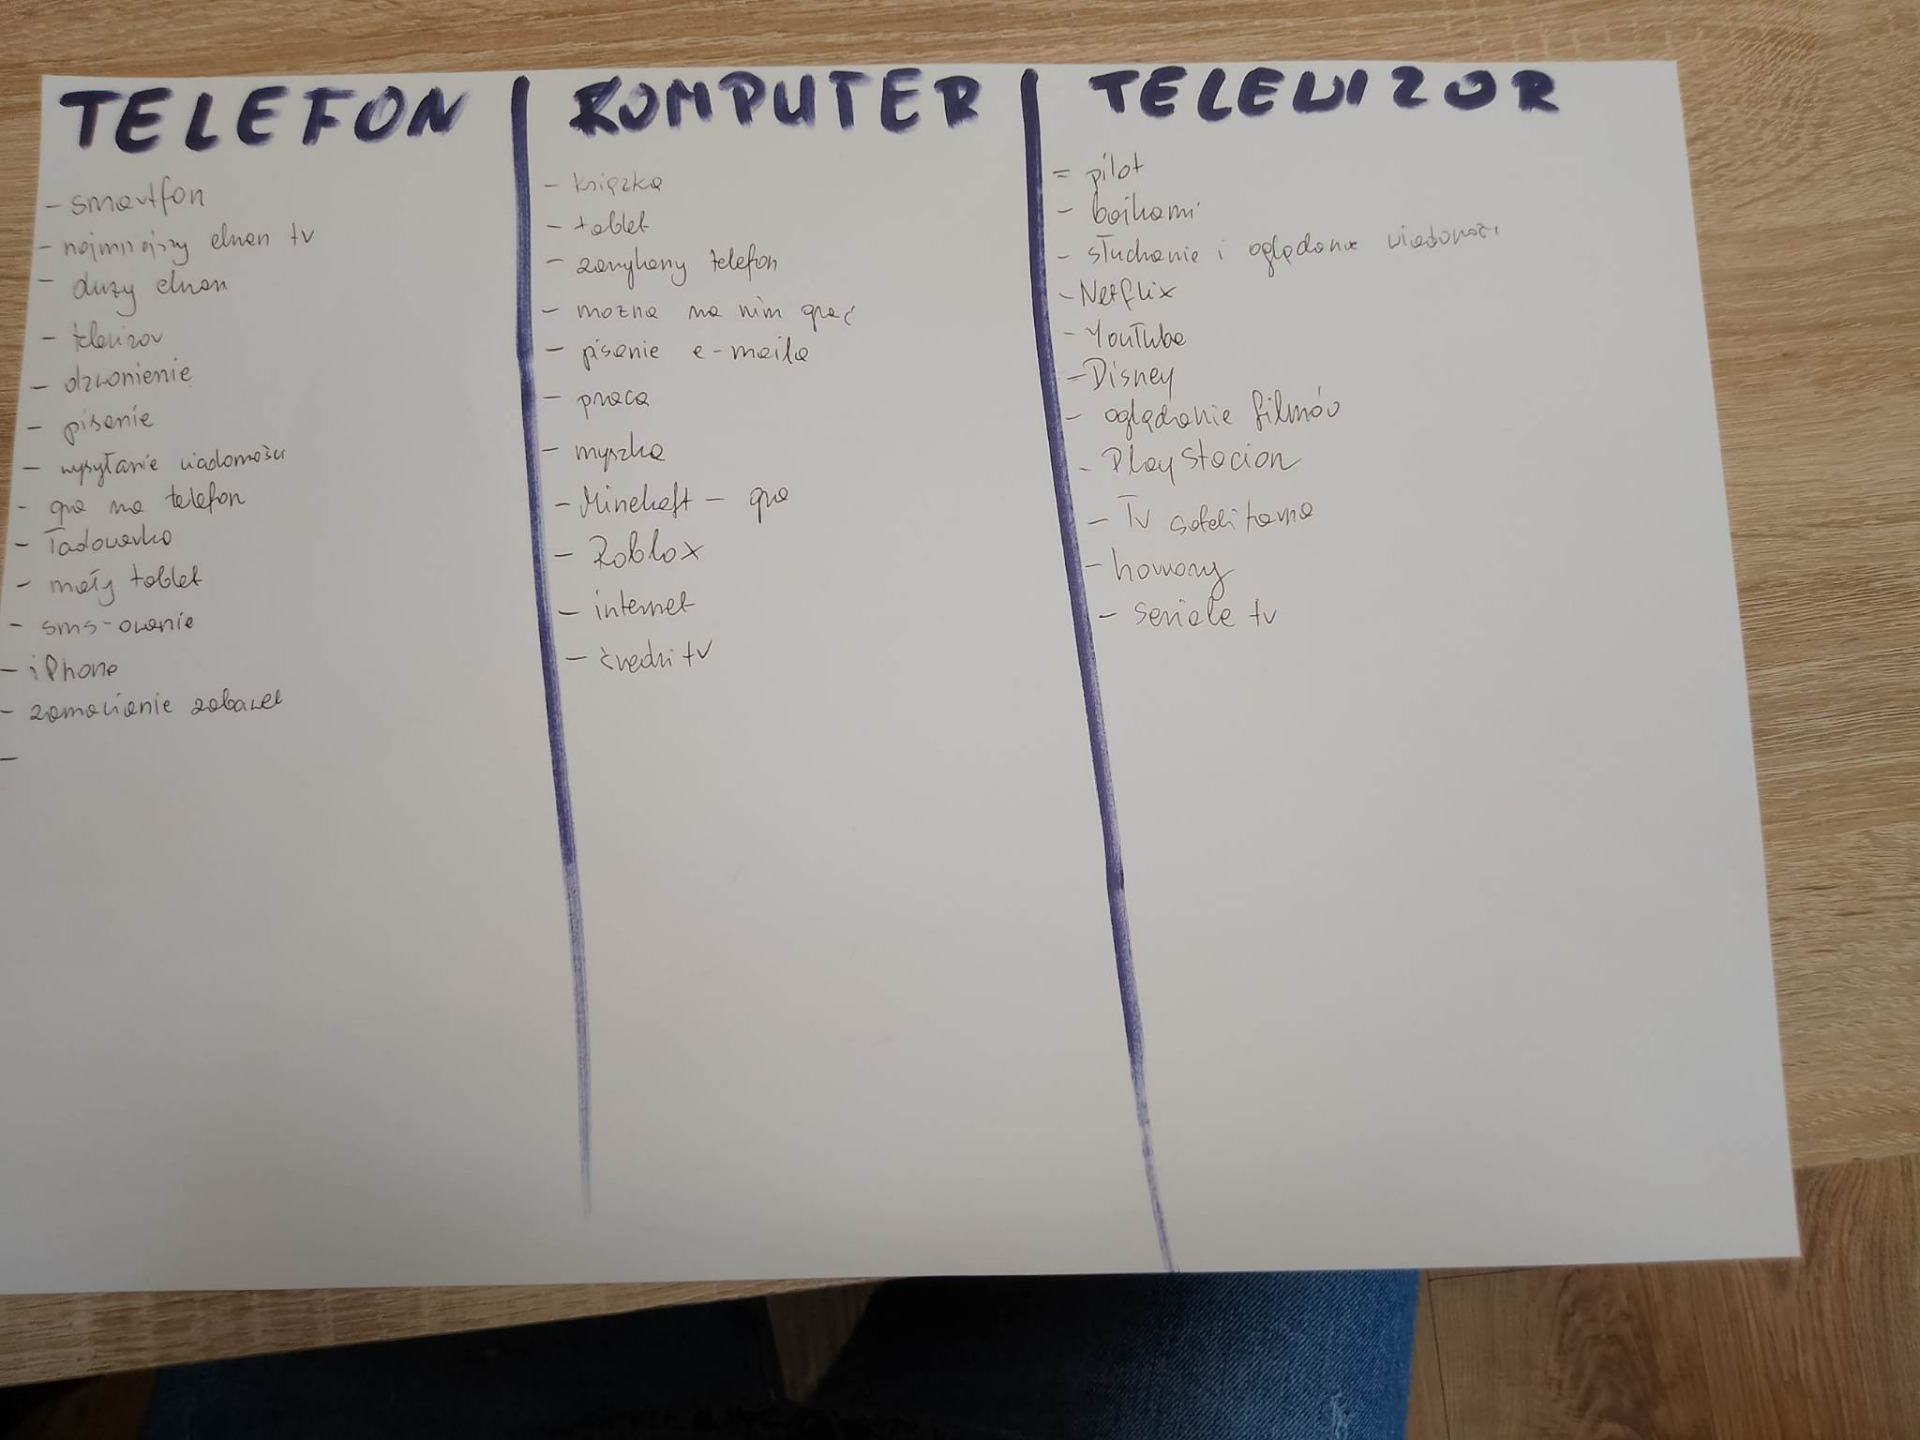 TELEFON
- smartfon
- najmniejszy ekran tv
- duży ekran
- telewizor
- dzwonienie
- pisanie
- wysyłanie wiadomości
- gra na telefon
- ładowarka
- mały tablet
- sms-owanie
- iPhone
- zamawianie zabawek
-
KOMPUTER
- książka
- tablet
- zamykany telefon
- można na nim grać
- pisanie e-maila
- praca
- myszka
- Minekraft - gra
- Roblox
- internet
- średni tv
TELEWIZOR
= pilot
- bajkami
- słuchanie i oglądanie wiadomości
- Netflix
- YouTube
- Disney
- oglądanie filmów
- PlayStacion
- Tv satelitarna
- seriale tv